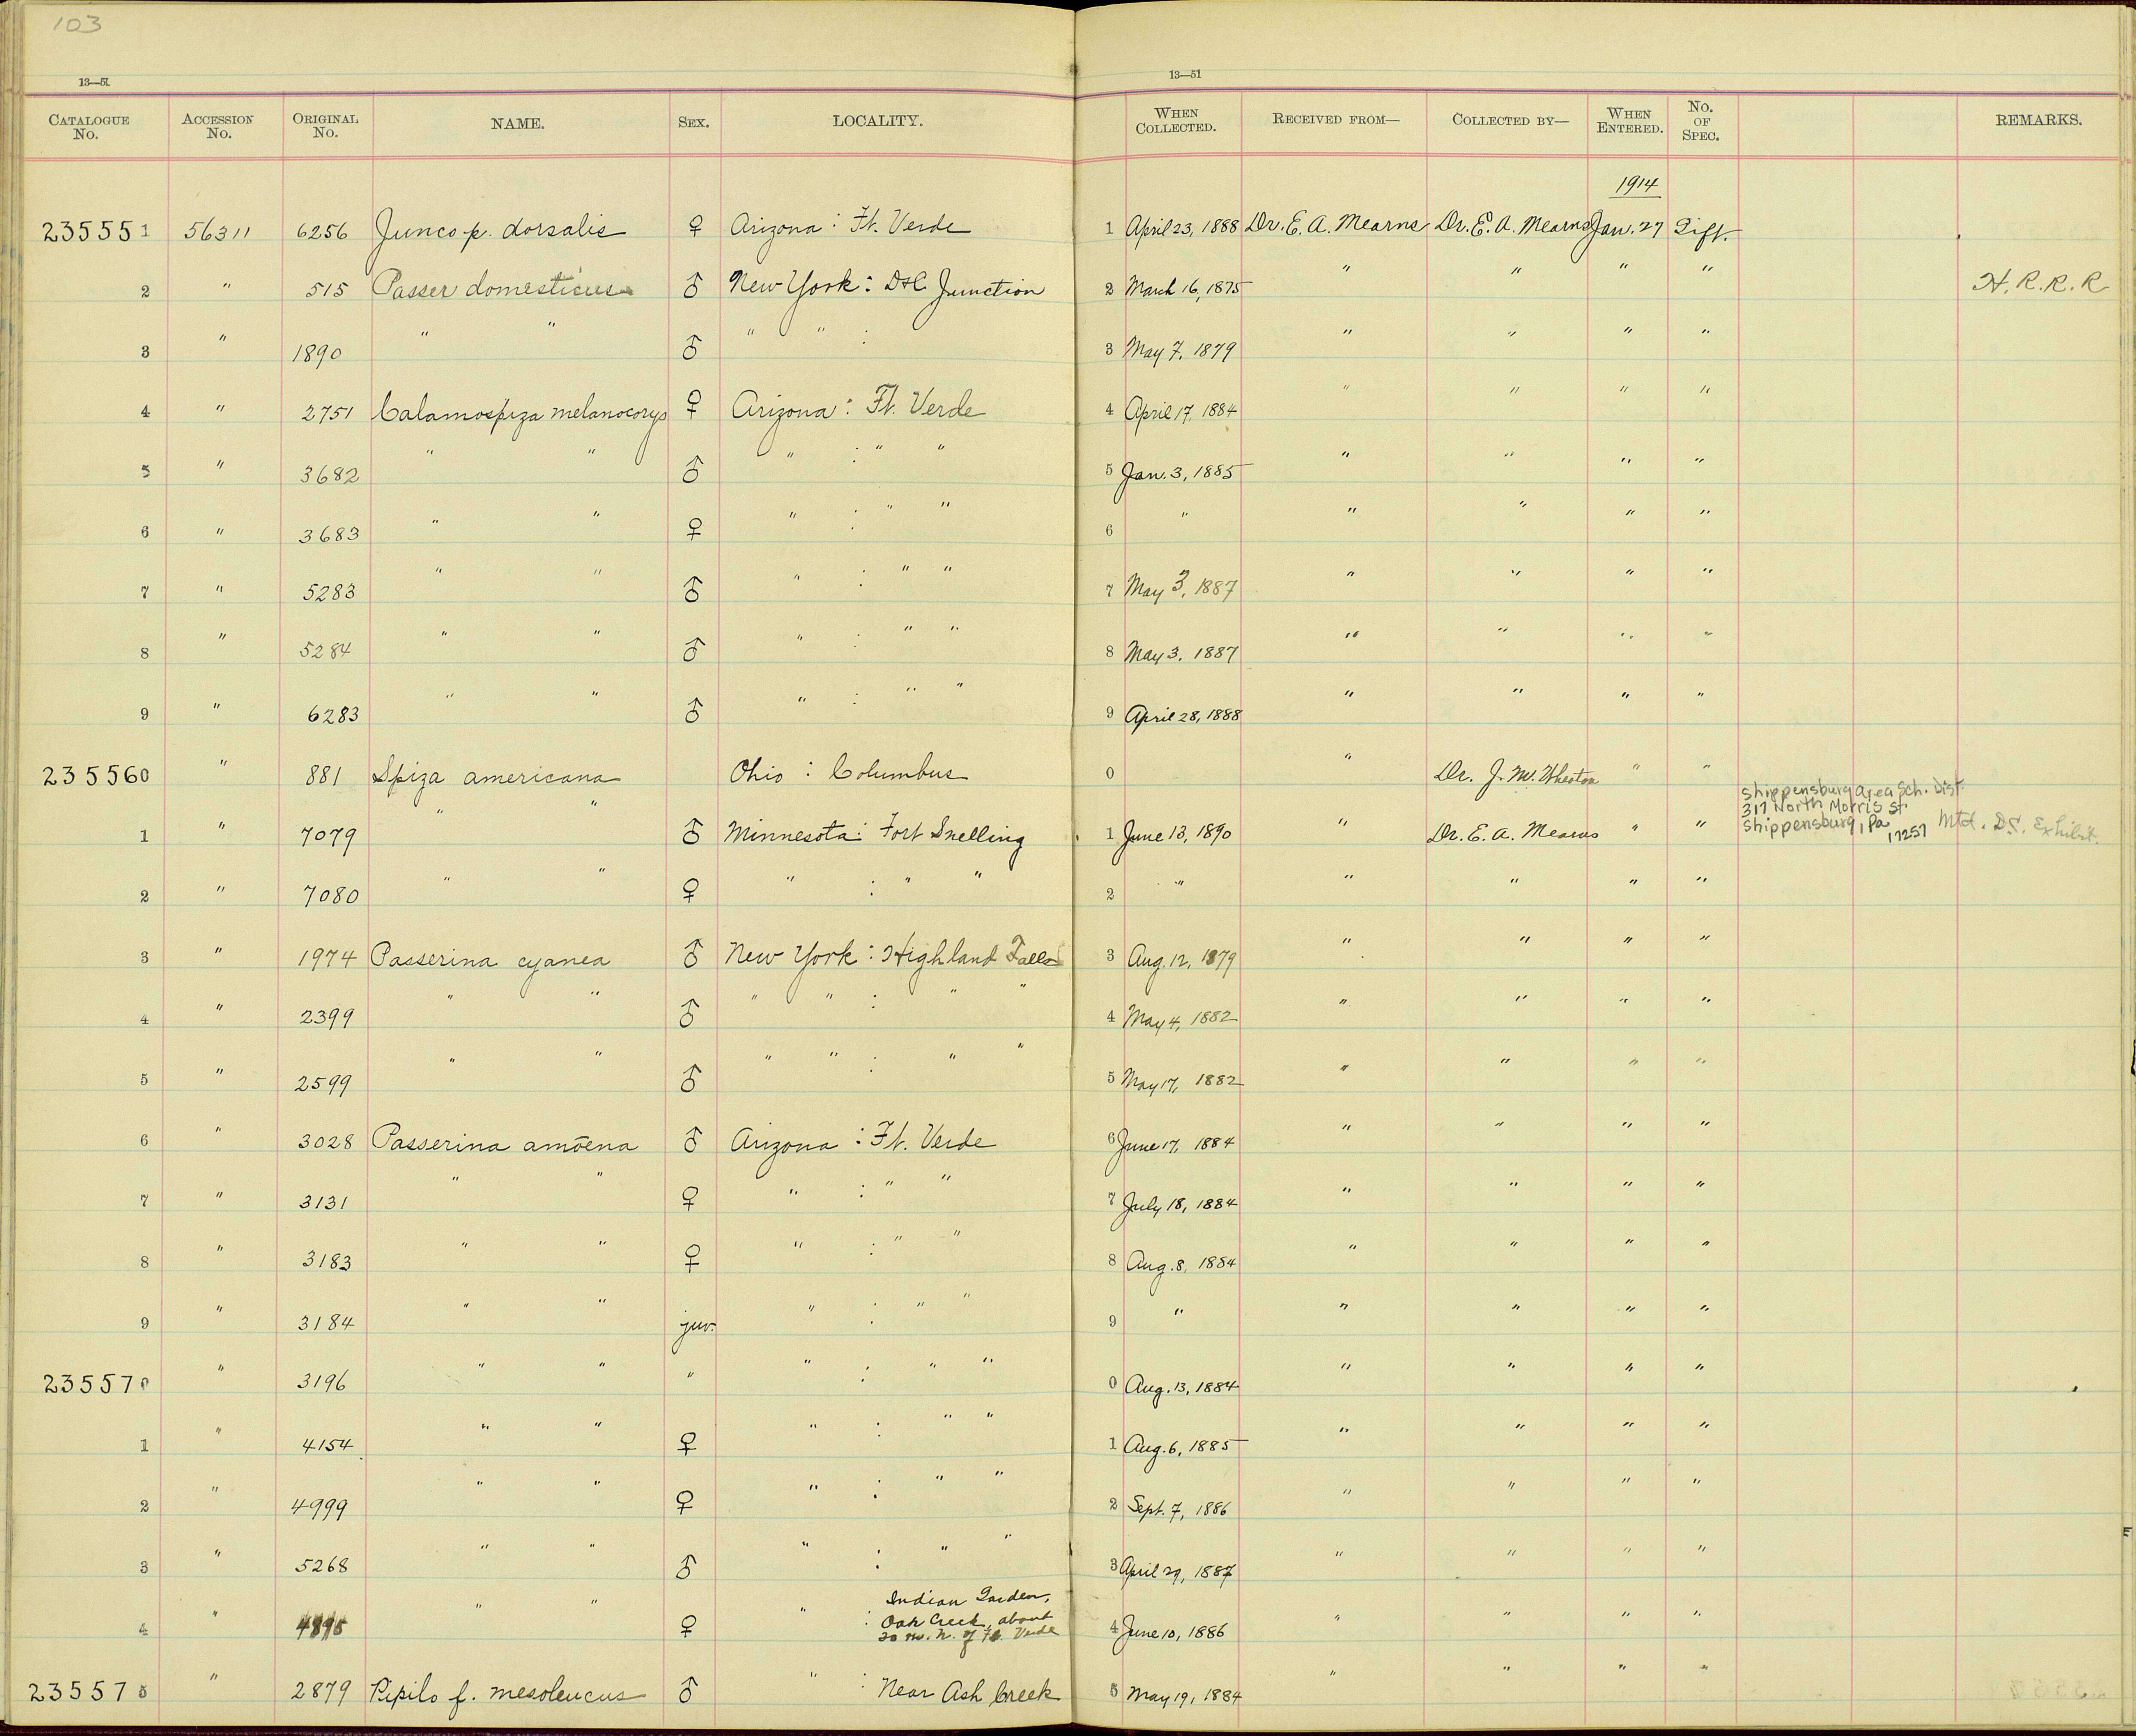 103
13—51 13—51
CATALOGUE No. ACCESSION No. ORIGINAL No. NAME. SEX. LOCALITY. WHEN COLLECTED. RECEIVED FROM— COLLECTED BY— WHEN ENTERED. No. OF SPEC. REMARKS.
1914
235551 56311 6256 Junco p. dorsalis ♀ Arizona : Ft. Verde 1 April 23, 1888 Dr. E. A. Mearns Dr. E. A. Mearns Jan. 27 Gift.
2 " 515 Passer domesticus ♂ New York : D&C Junction 2 March 16, 1875 " " " " H. R. R. R
3 " 1890 " " ♂ " " : 3 May 7, 1879 " " " "
4 " 2751 Calamospiza melanocorys ♀ Arizona : Ft. Verde 4 April 17, 1884 " " " "
5 " 3682 " " ♂ " : " " 5 Jan. 3, 1885 " " " "
6 " 3683 " " ♀ " : " " 6 " " " " "
7 " 5283 " " ♂ " : " " 7 May 3, 1887 " " " "
8 " 5284 " " ♂ " : " " 8 May 3, 1887 " " " "
9 " 6283 " " ♂ " : " " 9 April 28, 1888 " " " "
235560 " 881 Spiza americana Ohio : Columbus 0 " Dr. J. M. Wheaton " "
Shippensburg Area Sch. Dist.
317 North Morris St
Shippensburg, Pa 17257
1 " 7079 " " ♂ Minnesota : Fort Snelling 1 June 13, 1890 " Dr. E. A. Mearns " " Mtd. D.S. Exhibit.
2 " 7080 " " ♀ " : " " 2 " " " " "
3 " 1974 Passerina cyanea ♂ New York : Highland Falls 3 Aug. 12, 1879 " " " "
4 " 2399 " " ♂ " " : " " 4 May 4, 1882 " " " "
5 " 2599 " " ♂ " " : " " 5 May 17, 1882 " " " "
6 " 3028 Passerina amoena ♂ Arizona : Ft. Verde 6 June 17, 1884 " " " "
7 " 3131 " " ♀ " : " " 7 July 18, 1884 " " " "
8 " 3183 " " ♀ " : " " 8 Aug. 8, 1884 " " " "
9 " 3184 " " juv. " : " " 9 " " " " "
235570 " 3196 " " " " : " " 0 Aug. 13, 1884 " " " "
1 " 4154 " " ♀ " : " " 1 Aug. 6, 1885 " " " "
2 " 4999 " " ♀ " : " " 2 Sept. 7, 1886 " " " "
3 " 5268 " " ♂ " : " " 3 April 29, 1887 " " " "
4 " " " ♀ " : Indian Garden, Oak Creek, about 20 mi. N. of Ft. Verde 4 June 10, 1886 " " " "
235575 " 2879 Pipilo f. mesoleucus ♂ " : Near Ash Creek 5 May 19, 1884 " " " "